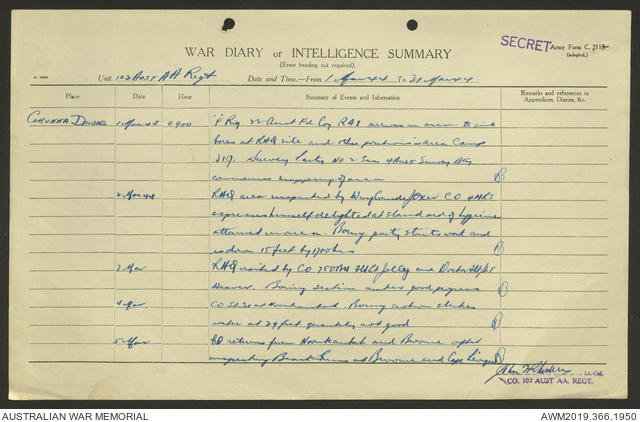 SECRET Army Form C. 2118
(adapted.)
WAR DIARY or INTELLIGENCE SUMMARY
(Erase heading not required).
Unit 102 Aust AA Regt Date and Time.—From 1 Mar 44 To 31 Mar 44
Place Date Hour Summary of Events and Information Remarks and references to
Appendices, Diaries, &c.
Corunna Downs 1 Mar 44 0900 Aust Fd Coy RAE arrives in area to sink
bores at RHQ site and other positions in area Camp
Survey Party No 2 Sec 4 Aust Survey Bty
commences mapping of area
2 Mar 44 RHQ area inspected by CO
expresses himself delighted at standard of hygiene
attained in area. Boring party starts work and
is down 15 feet by 1700 hrs
3 Mar RHQ visited by CO and Doctor
Boring section makes good progress
4 Mar. CO still at Boring section strikes
water at 29 feet quantity not good
5 Mar CO returns from Noonkanbah and Broome after
inspecting Beach Guns at Broome and Cape
Lt-Col
CO. 102 AUST AA. REGT.
AUSTRALIAN WAR MEMORIAL AWM2019.366.1950